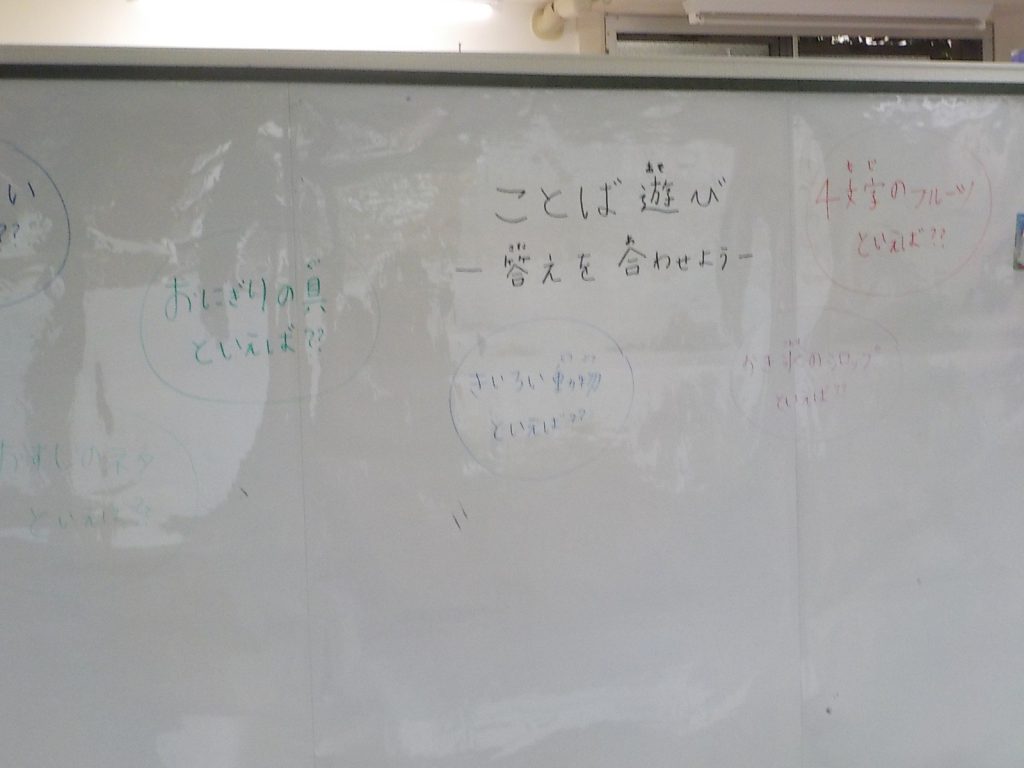 ことば遊び
あそ
ー答えを合わせようー
こた
あ
い
??
おにぎりの具
ぐ
といえば??
4文字のフルーツ
も じ
といえば??
きいろい動物
といえば??
かき氷のシロップ
といえば??
おすしのネタ
といえば?